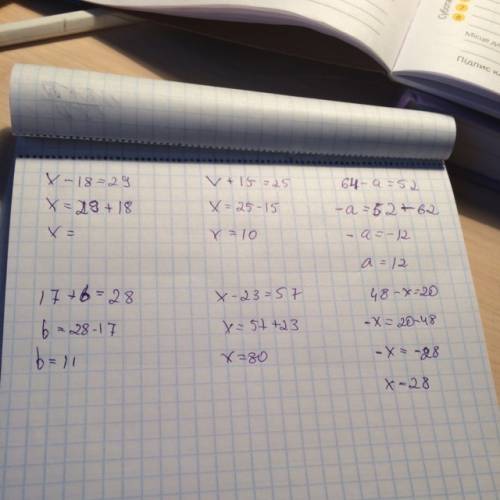 Місце
Підпис
x - 18 = 29
x = 29 + 18
x =
x + 15 = 25
x = 25 - 15
x = 10
64 - a = 52
-a = 52 - 62
-a = -12
a = 12
17 + b = 28
b = 28 - 17
b = 11
x - 23 = 57
x = 57 + 23
x = 80
48 - x = 20
-x = 20 - 48
-x = -28
x - 28